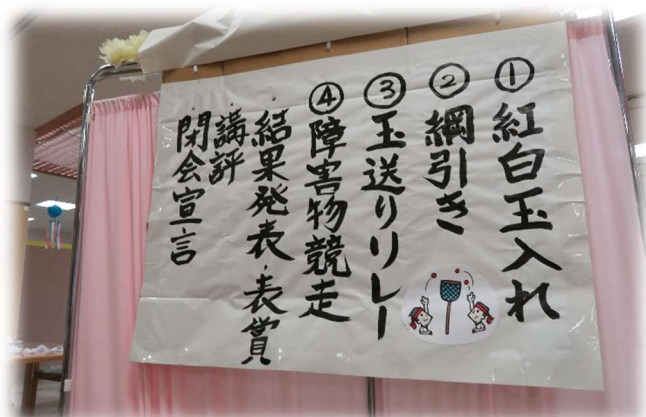 ①紅白玉入れ
②綱引き
③玉送りリレー
④障害物競走
結果発表・表賞
講評
閉会宣言